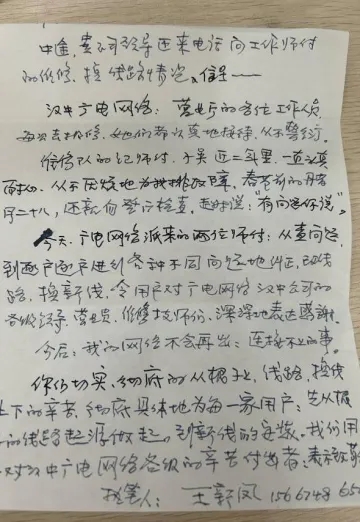 中途,贵公司领导还来电话问工作师付
的维修,换线路情况
汉中广电网络: 营业厅的各位工作人员,
每次去报修,她们都认真地接待,从不敷衍。
维修队的 师付, 近三年里,一直认真
耐心,从不厌烦地为我排故障。春节前的
月二十八,还亲自登门检查,还说:“有问题你说”
今天:广电网络派来的两位师付:从查问题
到逐户逐户进到各种不同问题地纠正,改线
路,换新线,令用户对广电网络汉中公司的
各级领导、营业员、维修技师们,深深地表达感谢。
今后:我的网络不会再出:连接不上的事。
你们切实、彻底的从根子上,线路,换线
上下的辛苦,彻底具体地为每一家用户:先从根
的线路起源做起。到新线的安装。我们用
对汉中广电网络各级的辛苦付出者:表示敬
执笔人: 王新凤 1566748